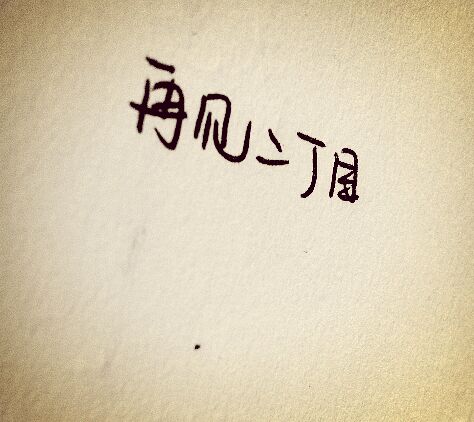 再见二丁目